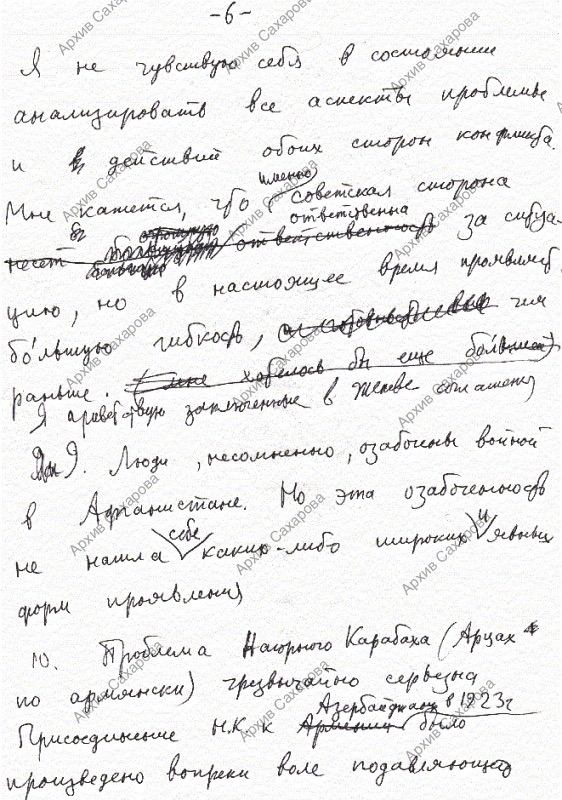 -6-
Я не чувствую себя в состоянии
анализировать все аспекты проблемы
и действий обоих сторон конфликта.
именно
Мне кажется, что советская сторона
ответственна
несет большую ответственность за ситуа-
цию, но в настоящее время проявляет
бо́льшую гибкость, чем
раньше. (мне хотелось бы еще большей)
Я приветствую заключенные в Женеве соглашения
9. Люди, несомненно, озабочены войной
в Афганистане. Но эта озабоченность
себе и
не нашла каких-либо широких явных
форм проявления
10. Проблема Нагорного Карабаха (Арцах
по армянски) чрезвычайно серьезна
Азербайджану в 1923г
Присоединение Н.К к Армении было
произведено вопреки воле подавляющего
Архив Сахарова